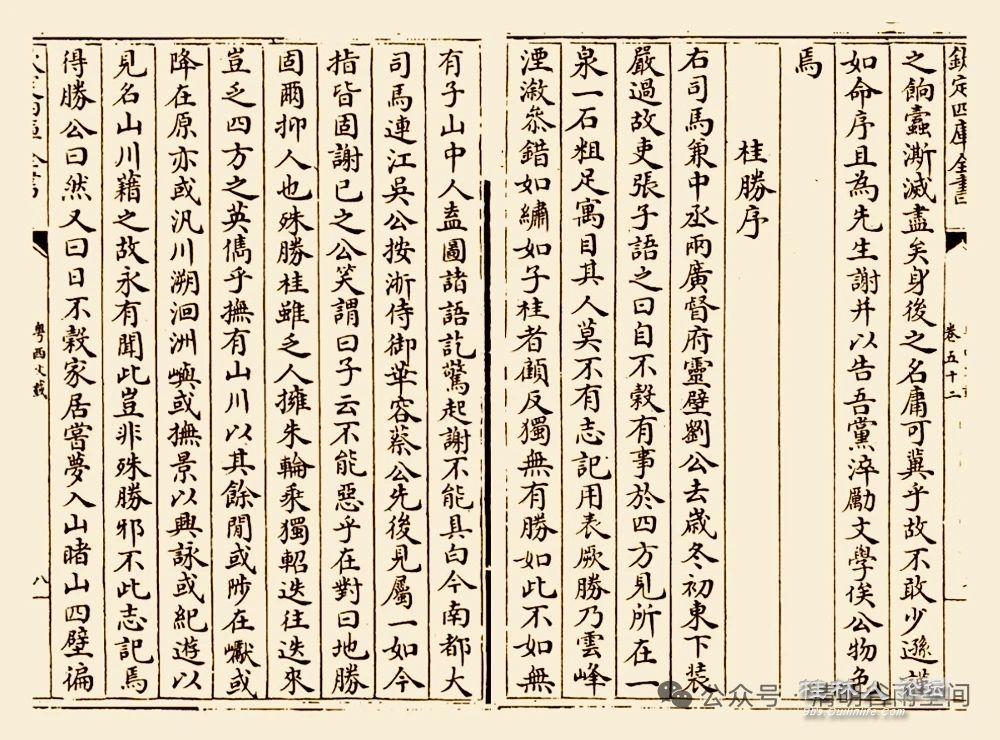 欽定四庫全書
卷五十二
之餉蠹澌滅盡矣身後之名庸可冀乎故不敢少遜謹
如命序且為先生謝并以告吾黨淬勵文學俟公物色
焉
桂勝序
右司馬兼中丞兩廣督府靈壁劉公去歲冬初東下裝
嚴過故吏張子語之曰自不穀有事於四方見所在一
泉一石粗足寓目其人莫不有志記用表厥勝乃雲峰
湮漵叅錯如繡如子桂者顧反獨無有勝如此不如無
有子山中人盍圖諸語訖驚起謝不能具白今南都大
司馬連江吳公按淅侍御華容蔡公先後見屬一如今
指皆固謝已之公笑謂曰子云不能惡乎在對曰地勝
固爾抑人也殊勝桂雖乏人擁朱輪乘獨軺迭往迭來
豈乏四方之英儁乎撫有山川以其餘閒或陟在巘或
降在原亦或汎川溯洄洲嶼或撫景以興詠或紀遊以
見名山川籍之故永有聞此豈非殊勝邪不此志記焉
得勝公曰然又曰日不穀家居嘗夢入山睹山四壁徧
粵西文載
八
公众号·清明谷雨空间